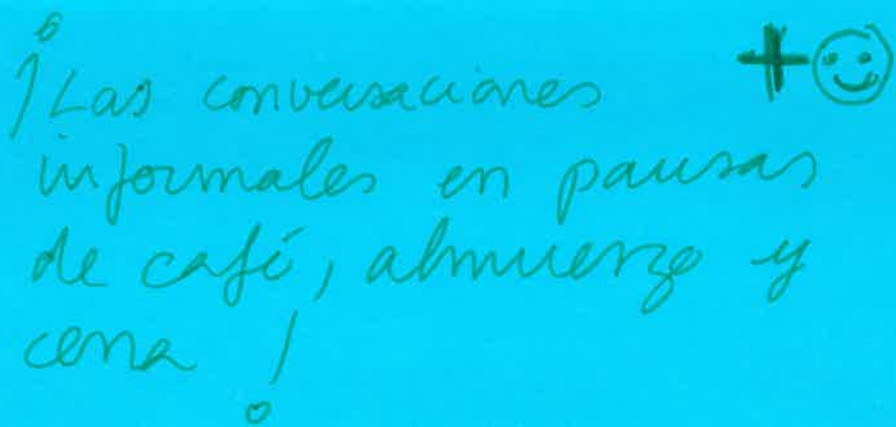 ¡Las conversaciones +☺
informales en pausas
de café, almuerzo y
cena!